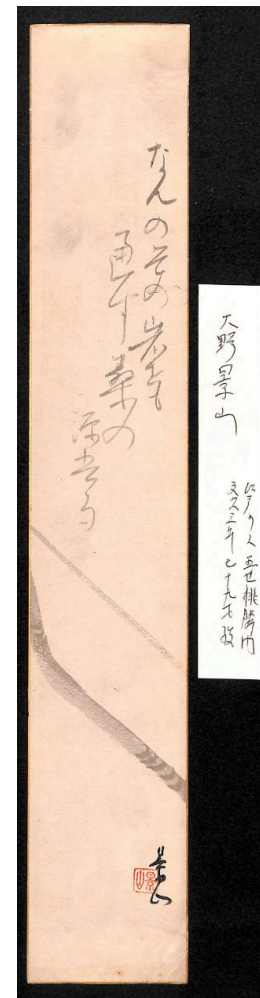 なんのその岩をも
通す桑の
源吾句
景山
景山
大野景山
江戸の人 五世桃隣門
文久三年 七十九才歿